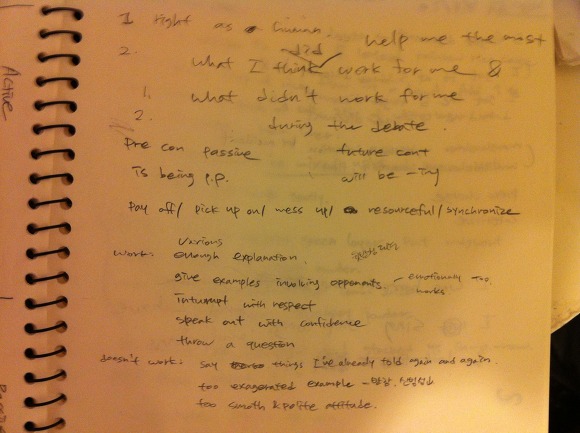 1 right as a human. help me the most
2. did
what I think work for me &
1. what didn't work for me
2. during the debate.
Pre con passive future cont
is being p.p. will be -ing
pay off/ pick up on/ mess up/ resourceful/ synchronize
various
work: enough explanation.
give examples involving opponents - emotionally too.
interrupt with respect
speak out with confidence
throw a question
doesn't work: say things I've already told again and again.
too exagerated example - 반감,
too smoth & polite attitude.
Active